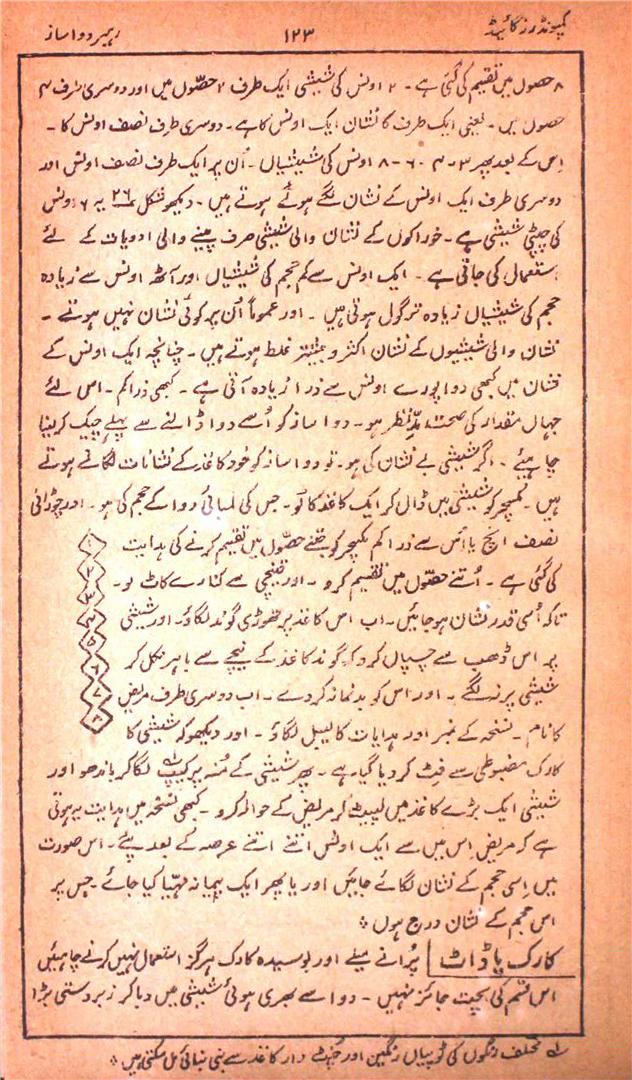 کمپونڈرز گائیڈ ۱۲۳ رہبر دواساز
۸ حصوں میں تقسیم کی گئی ہے۔ ۲ اونس کی شیشی ایک طرف ۲ حصّوں میں اور دوسری طرف ۴
حصوں میں۔ یعنی ایک طرف کا نشان ایک اونس کا ہے۔ دوسری طرف نصف اونس کا۔
اس کے بعد پھر ۳-۴-۶-۸ اونس کی شیشیاں۔ اُن پر ایک طرف نصف اونس اور
دوسری طرف ایک اونس کے نشان لگے ہوئے ہوتے ہیں۔ دیکھو شکل ۲۶ یہ ۶ اونس
کی چپٹی شیشی ہے۔ خوراکوں کے نشان والی شیشی صرف پینے والی ادویات کے لئے
استعمال کی جاتی ہے۔ ایک اونس سے کم حجم کی شیشیاں اور آٹھ اونس سے زیادہ
حجم کی شیشیاں زیادہ تر گول ہوتی ہیں۔ اور عموماً اُن پر کوئی نشان نہیں ہوتے۔
نشان والی شیشیوں کے نشان اکثر و بیشتر غلط ہوتے ہیں۔ چنانچہ ایک اونس کے
نشان میں کبھی دوا پورے اونس سے ذرا زیادہ آتی ہے۔ کبھی ذرا کم۔ اس لئے
جہاں مقدار کی صحت مدِّنظر ہو۔ دواساز کو اُسے دوا ڈالنے سے پہلے چیک کرلینا
چاہیئے۔ اگر شیشی بے نشان کی ہو۔ تو دواساز کو خود کاغذ کے نشانات لگانے ہوتے
ہیں۔ مکسچر کو شیشی میں ڈال کر ایک کاغذ کا لو۔ جس کی لمبائی دوا کے حجم کی ہو۔ اور چوڑائی
نصف انچ یا اس سے ذرا کم مکسچر کو جتنے حصّوں میں تقسیم کرنے کی ہدایت
کی گئی ہے۔ اُتنے حصّوں میں تقسیم کرو۔ اور قینچی سے کنارے کاٹ لو۔
تاکہ اُسی قدر نشان ہوجائیں۔ اب اس کاغذ پر تھوڑی گوند لگاؤ۔ اور شیشی
پر اس ڈھب سے چسپاں کرو کہ گوند کاغذ کے نیچے سے باہر نکل کر
شیشی پر نہ لگے۔ اور اس کو بدنما نہ کردے۔ اب دوسری طرف مریض
کا نام۔ نسخہ کے نمبر اور ہدایات کا لیبل لگاؤ۔ اور دیکھو کہ شیشی کا
کارک مضبوطی سے فِٹ کردیا گیا ہے۔ پھر شیشی کے مُنہ پر کیپ لگا کر باندھو اور
شیشی ایک بڑے کاغذ میں لپیٹ کر مریض کے حوالہ کرو۔ کبھی نسخہ میں ہدایت یہ ہوتی
ہے کہ مریض اس میں سے ایک اونس اتنے اتنے عرصہ کے بعد پئے۔ اس صورت
میں اسی حجم کے نشان لگائے جائیں اور یا پھر ایک پیمانہ مہیّا کیا جائے۔ جس پر
اس حجم کے نشان درج ہوں ÷
کارک یا ڈاٹ پُرانے میلے اور بوسیدہ کارک ہرگز استعمال نہیں کرنے چاہئیں
اس قسم کی بچت جائز نہیں۔ دوا سے بھری ہوئی شیشی میں دبا کر زبردستی بڑا
مختلف رنگوں کی ٹوپیاں رنگین اور چنٹ دار کاغذ سے بنی بنائی مل سکتی ہیں ÷